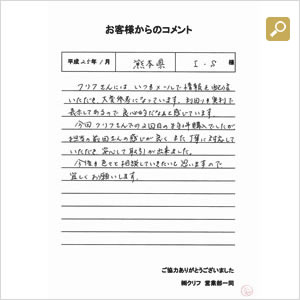 お客様からのコメント
平成25年1月 熊本県 I・S 様
クリフさんには いつもメールで情報を配信
いただき、大変参考になっています。利回りも実利で
表示してあるので 良心的だなぁと感じています。
今回 クリフさんでの2回目の 購入でしたが
担当の前田さんの感じが良く、また丁寧に対応して
いただき 安心して取引が出来ました。
今後も色々と相談していきたいと思いますので
宜しくお願いします。
ご協力ありがとうございました
㈱クリフ 営業部一同